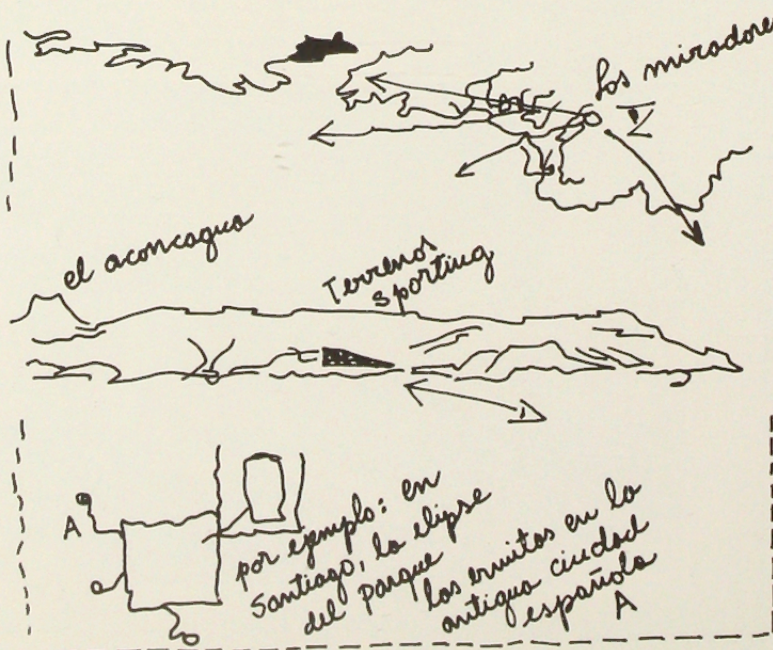 los miradores
el aconcagua
Terrenos
sporting
A
por ejemplo: en
Santiago, la elipse
del parque
las ermitas en la
antigua ciudad
española
A